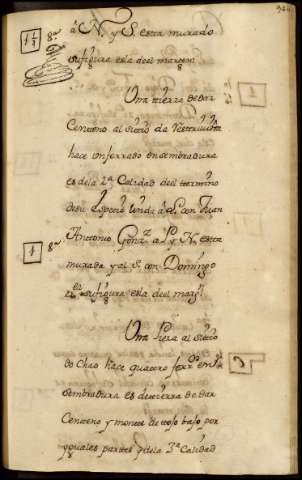 á N. y S. esta murado
su figura es la del margen
Una tierra de dar
Centeno al sitio da
hace un ferrado en sembradura
es de la 2ª Calidad del termino
de su Especie linda á L. con Juan
Antonio Gonz.z a P. y N. esta
murada y al S. con Domingo
su figura es la del marg.n
Una Pieza al sitio
do Chao hace quatro ferr.s en
sembradura es de tierra de dar
Centeno y monte de tojo bajo por
yguales partes de la 3ª Calidad